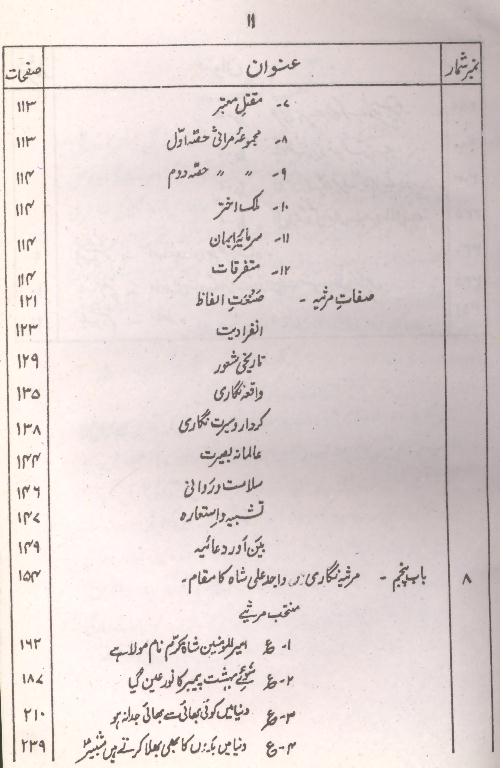 ۱۱
نمبر شمار عنوان صفحات
۷- مقتلِ معتبر ۱۱۳
۸- مجموعۂ مراثی حصّہ اوّل ۱۱۳
۹-〃 〃 حصّہ دوم ۱۱۴
۱۰- ملک اختر ۱۱۴
۱۱- سرمایۂ ایمان ۱۱۴
۱۲- متفرقات ۱۱۴
صفاتِ مرثیہ - صَنعتِ الفاظ ۱۲۱
انفرادیت ۱۲۳
تاریخی شعور ۱۲۹
واقعہ نگاری ۱۳۵
کردار و سیرت نگاری ۱۳۸
عالمانہ بصیرت ۱۴۴
سلاست و روانی ۱۴۶
تشبیہ و اِستعارہ ۱۴۷
بَین اور دعائیہ ۱۴۹
۸ باب پنجم - مرثیہ نگاری میں واجد علی شاہ کا مقام - ۱۵۴
منتخب مرثیے
۱- ع امیرالمومنین شاہِ کرّم نام مولا ہے ۱۶۲
۲- ع سُوئے بہشت پیمبر کا نورِ عین گیا ۱۸۷
۳- ع دنیا میں کوئی بھائی سے بھائی جدا نہ ہو ۲۱۰
۴- ع دنیا میں بَدوں کا بھی بھلا کرتے ہیں شبیرؑ ۲۳۹